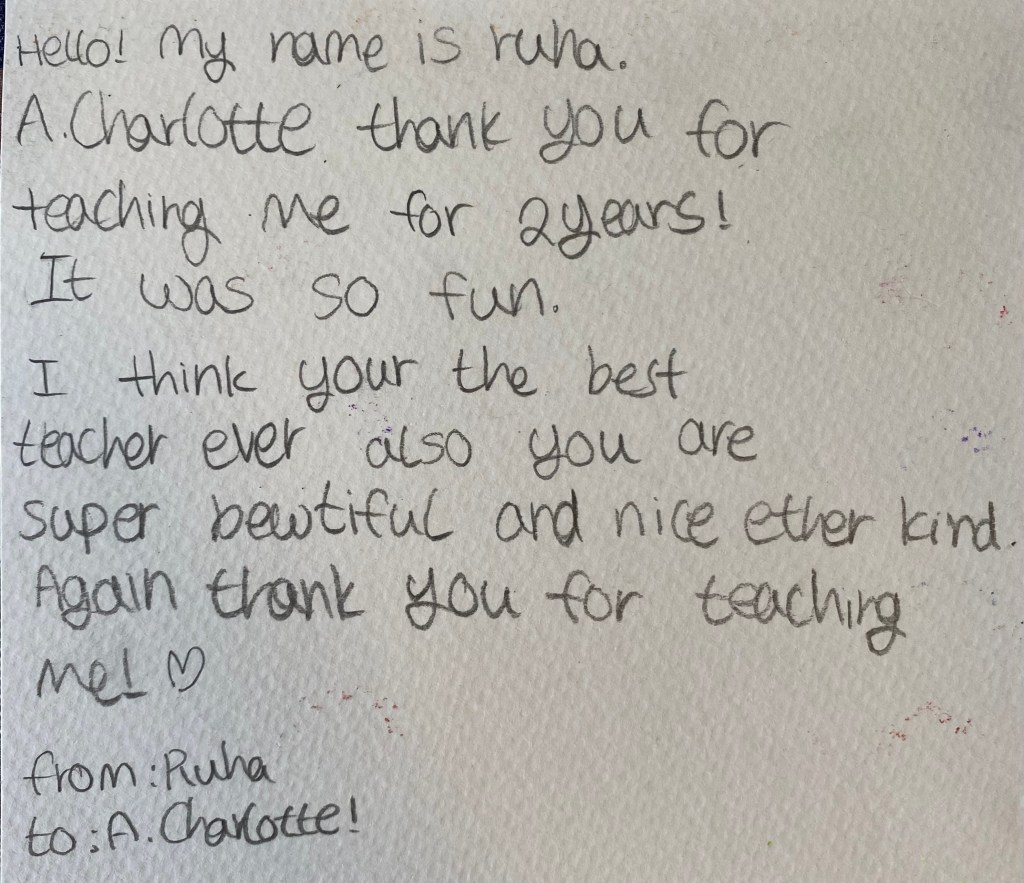 Hello! My name is ruha.
A. Charlotte thank you for
teaching me for 2years!
It was so fun.
I think your the best
teacher ever also you are
super bewtiful and nice ether kind.
Again thank you for teaching
me! ♡
from: Ruha
to: A. Charlotte!